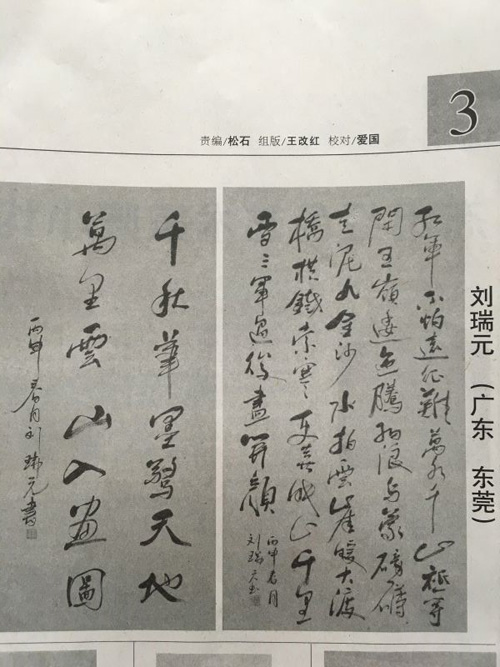 3
责编/松石 组版/王改红 校对/爱国
刘瑞元 (广东 东莞)
红軍不怕远征難萬水千山祗等
閒五嶺逶迤腾细浪乌蒙磅礴
走泥丸金沙水拍雲崖暖大渡
橋横鐵索寒更喜岷山千里
雪三軍过後盡開颜
丙申春月
刘瑞元书
千秋筆墨驚天地
萬里雲山入畫圖
丙申春月刘瑞元書